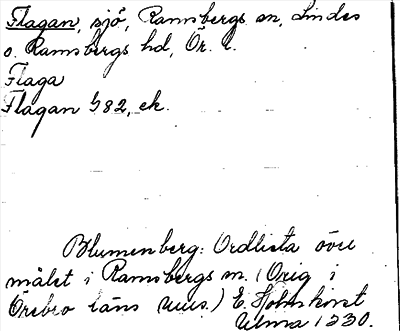 Flagan, sjö, Ramsbergs sn, Lindes
o. Ramsbergs hd, Ör. l.
Flaga
Flagan G82, ek.
Blumenberg: Ordlista över
målet i Ramsbergs sn. (Orig i
Örebro läns mus.) E. Holmkvist
Ulma 1230.